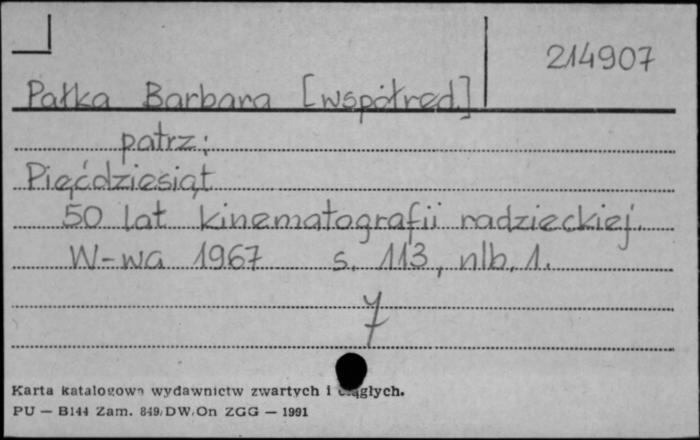 214907
Pałka Barbara [współred.]
patrz:
Pięćdziesiąt
50 lat kinematografii radzieckiej.
W-wa 1967 s. 113, nlb. 1.
Karta katalogowa wydawnictw zwartych i ciągłych.
PU — B144 Zam. 849/DW/On ZGG — 1991